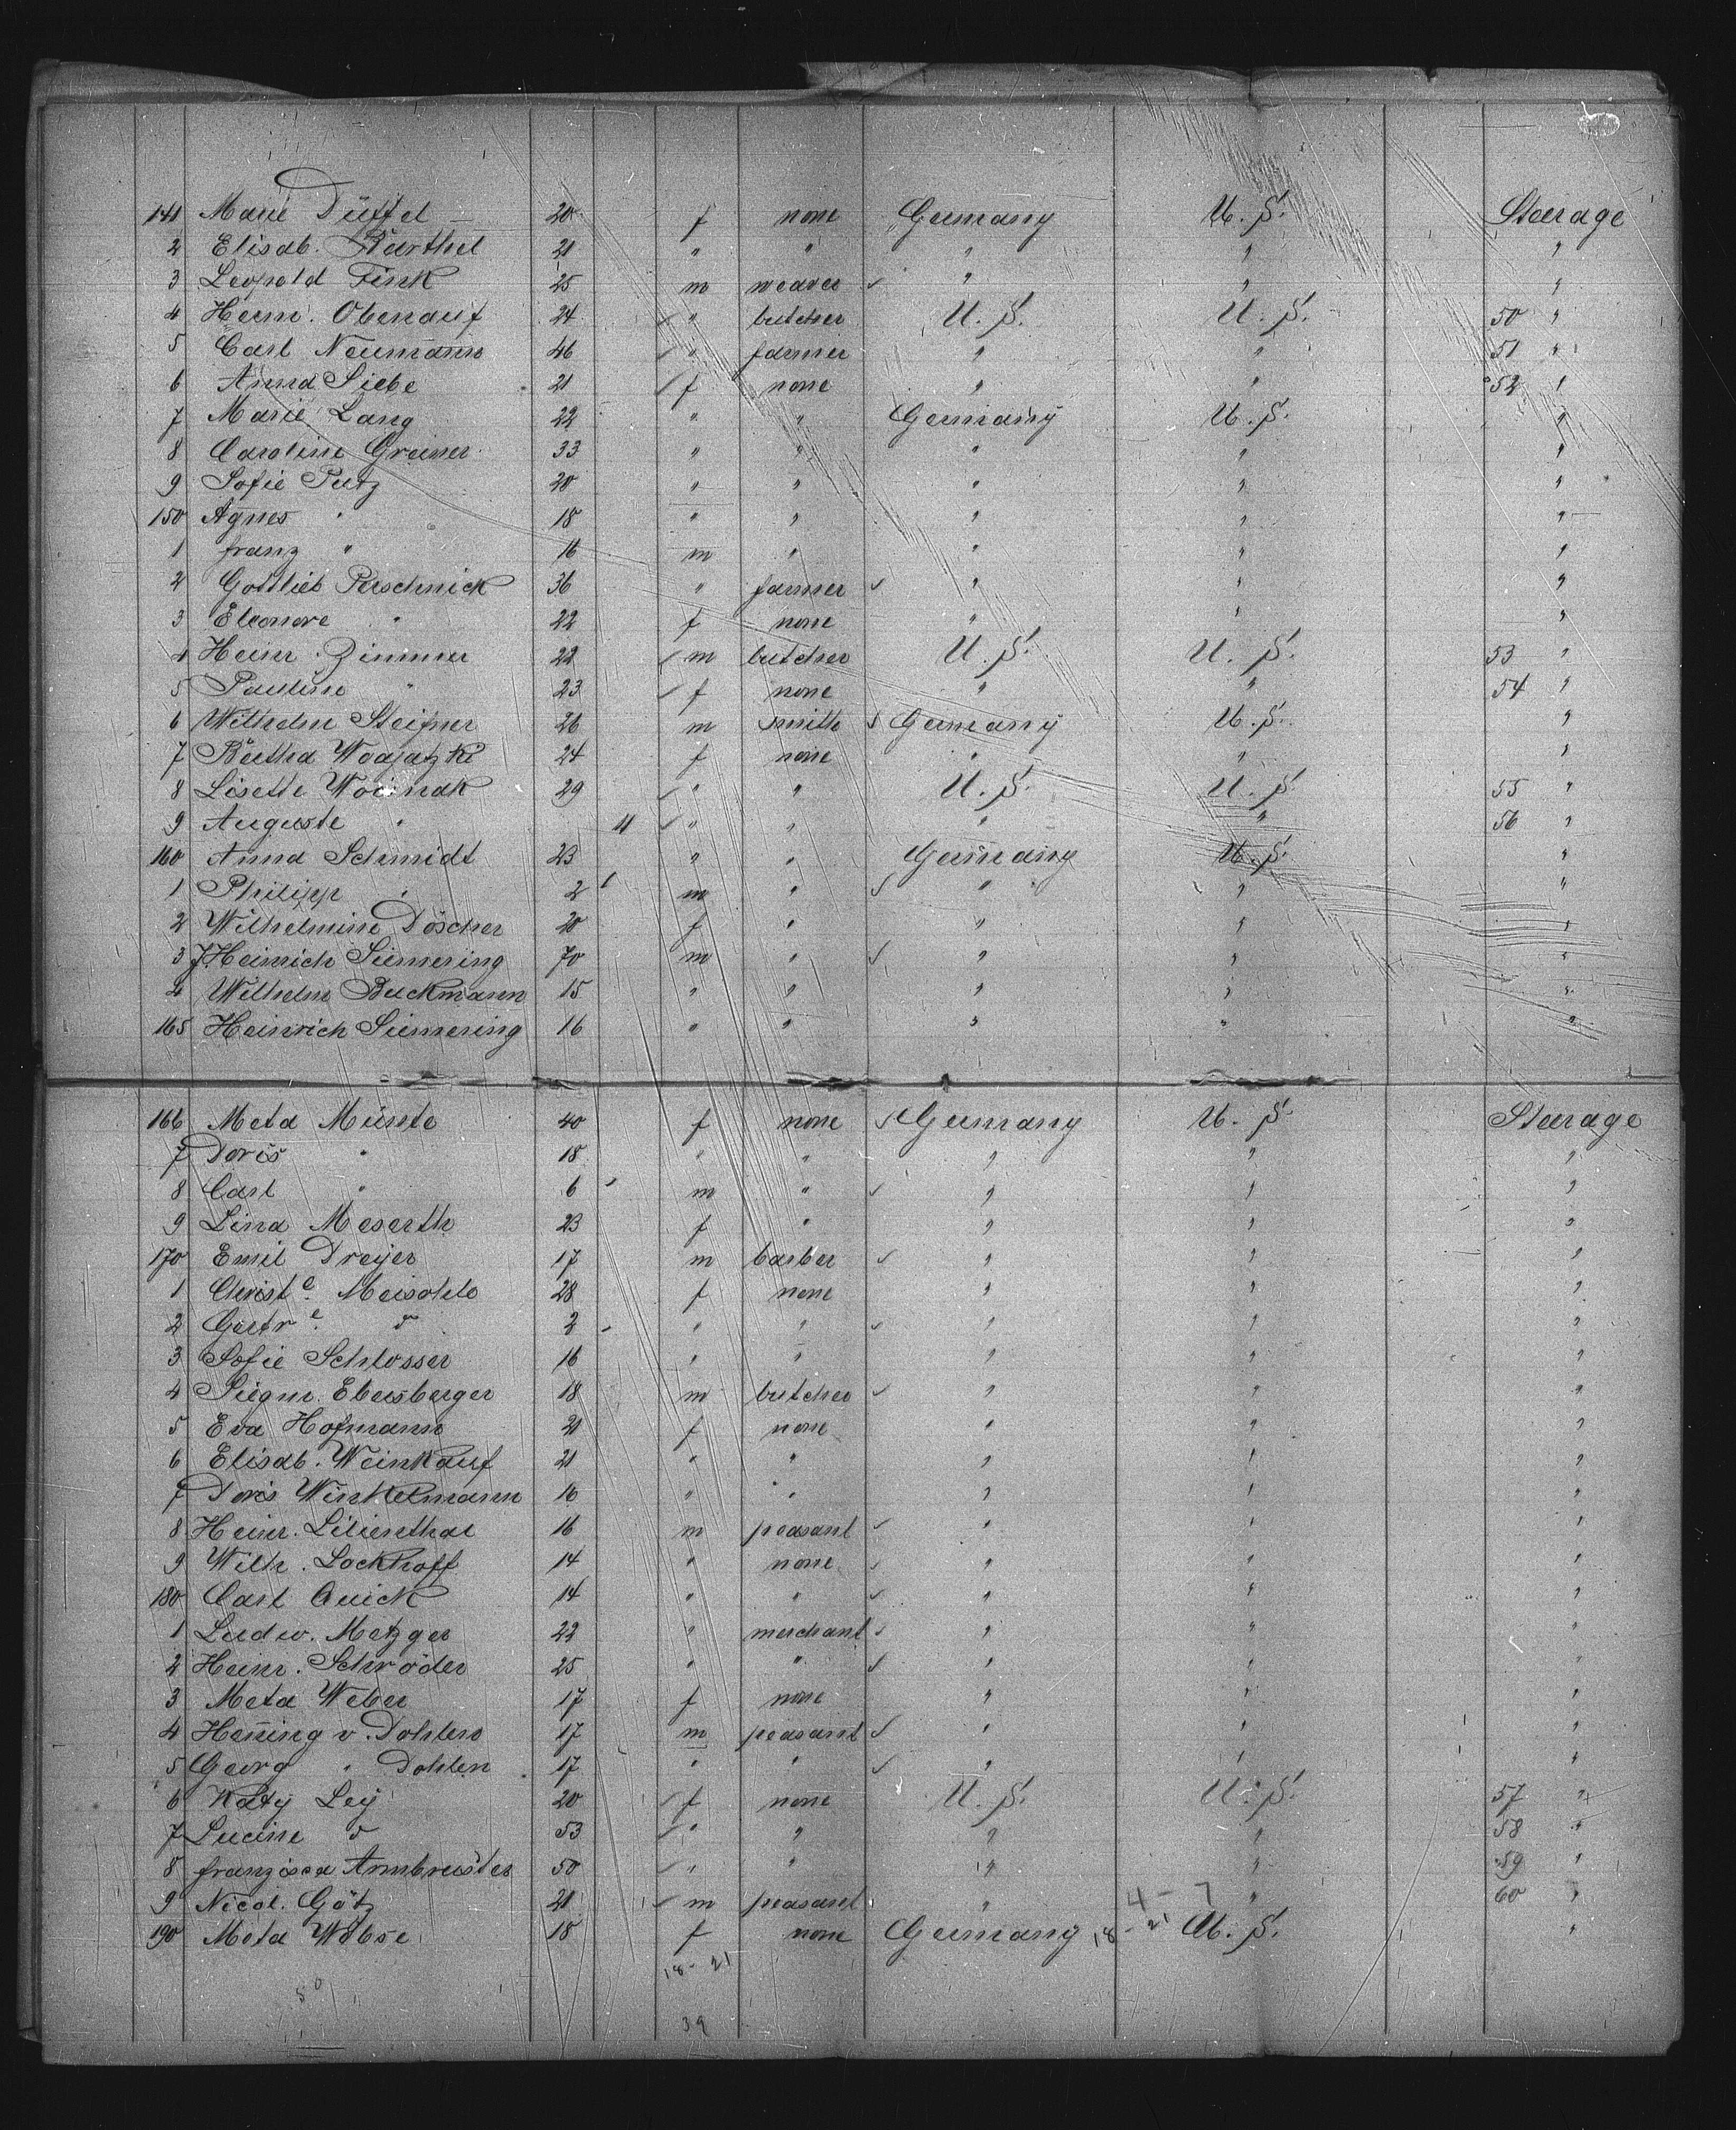 141 Marie Düffel — 20 f none Germany U.S. Steerage
2 Elisab. Barthel 21 " " " " "
3 Leopold Fink 25 m weaver ✓ " " "
4 Herm. Obenauf 24 ✓ " butcher U.S. U.S. 50 "
5 Carl Neumann 46 ✓ " farmer " " 51 "
6 Anna Siebe 21 ✓ f none " " 52 "
7 Marie Lang 22 " " Germany U.S. "
8 Caroline Greiner 33 " " " " "
9 Sofie Putz 20 " " " " "
150 Agnes " 18 " " " " "
1 Franz " 16 m " " " "
2 Gottlieb Perschnick 36 " farmer ✓ " " "
3 Eleonore " 22 f none " " "
4 Heinr. Zimmer 22 ✓ m butcher U.S. U.S. 53 "
5 Pauline " 23 ✓ f none " " 54 "
6 Wilhelm 26 m smith ✓ Germany U.S. "
7 Bertha Wodjatzki 24 f none " " "
8 Lisette Woinak 29 ✓ " " U.S. U.S. 55 "
9 Auguste " 11 ✓ " " " " 56 "
160 Anna Schmidt 23 " " Germany U.S. "
1 Philipp " 2 m " ✓ " " "
2 Wilhelmine Döscher 20 f " " " "
3 J. Heinrich Siemering 70 m " ✓ " " "
4 Wilhelm Buckmann 15 " " " " "
165 Heinrich Siemering 16 " " " " "
166 Meta Münte 40 f none ✓ Germany U.S. Steerage
7 Doris " 18 " " " " "
8 Carl " 6 m " ✓ " " "
9 Lina Meserth 23 f " " " "
170 Emil Dreyer 17 m barber ✓ " " "
1 Christe. 28 f none " " "
2 Gertre. d 2 " " ✓ " " "
3 Sofie Schlosser 16 " " " " "
4 Siegm. Ebersberger 18 m butcher ✓ " " "
5 Eva Hofmann 21 f none " " "
6 Elisab. Weinkauf 21 " " " " "
7 Doris Winkelmann 16 " " " " "
8 Heinr. Lilienthal 16 m peasant ✓ " " "
9 Wilh. Lockhoff 14 " none ✓ " " "
180 Carl Quick 14 " " ✓ " " "
1 Ludw. Metzger 22 " merchant ✓ " " "
2 Heinr. Schröder 25 " " ✓ " " "
3 Meta Weber 17 f none " " "
4 Hen̄ing v. Dohlen 17 m peasant ✓ " " "
5 Georg " Dohlen 17 " " ✓ " " "
6 Katy Ley 20 ✓ f none U.S. U.S. 57 "
7 Lucine d 53 ✓ " " " " 58 "
8 Franzisca Armbruster 50 ✓ " " " " 59 "
9 Nicol. Götz 21 ✓ m peasant " 4-7 " 60 "
190 Meta Wöbse 18 f none Germany 18-21 U.S. "
18-21
50
39